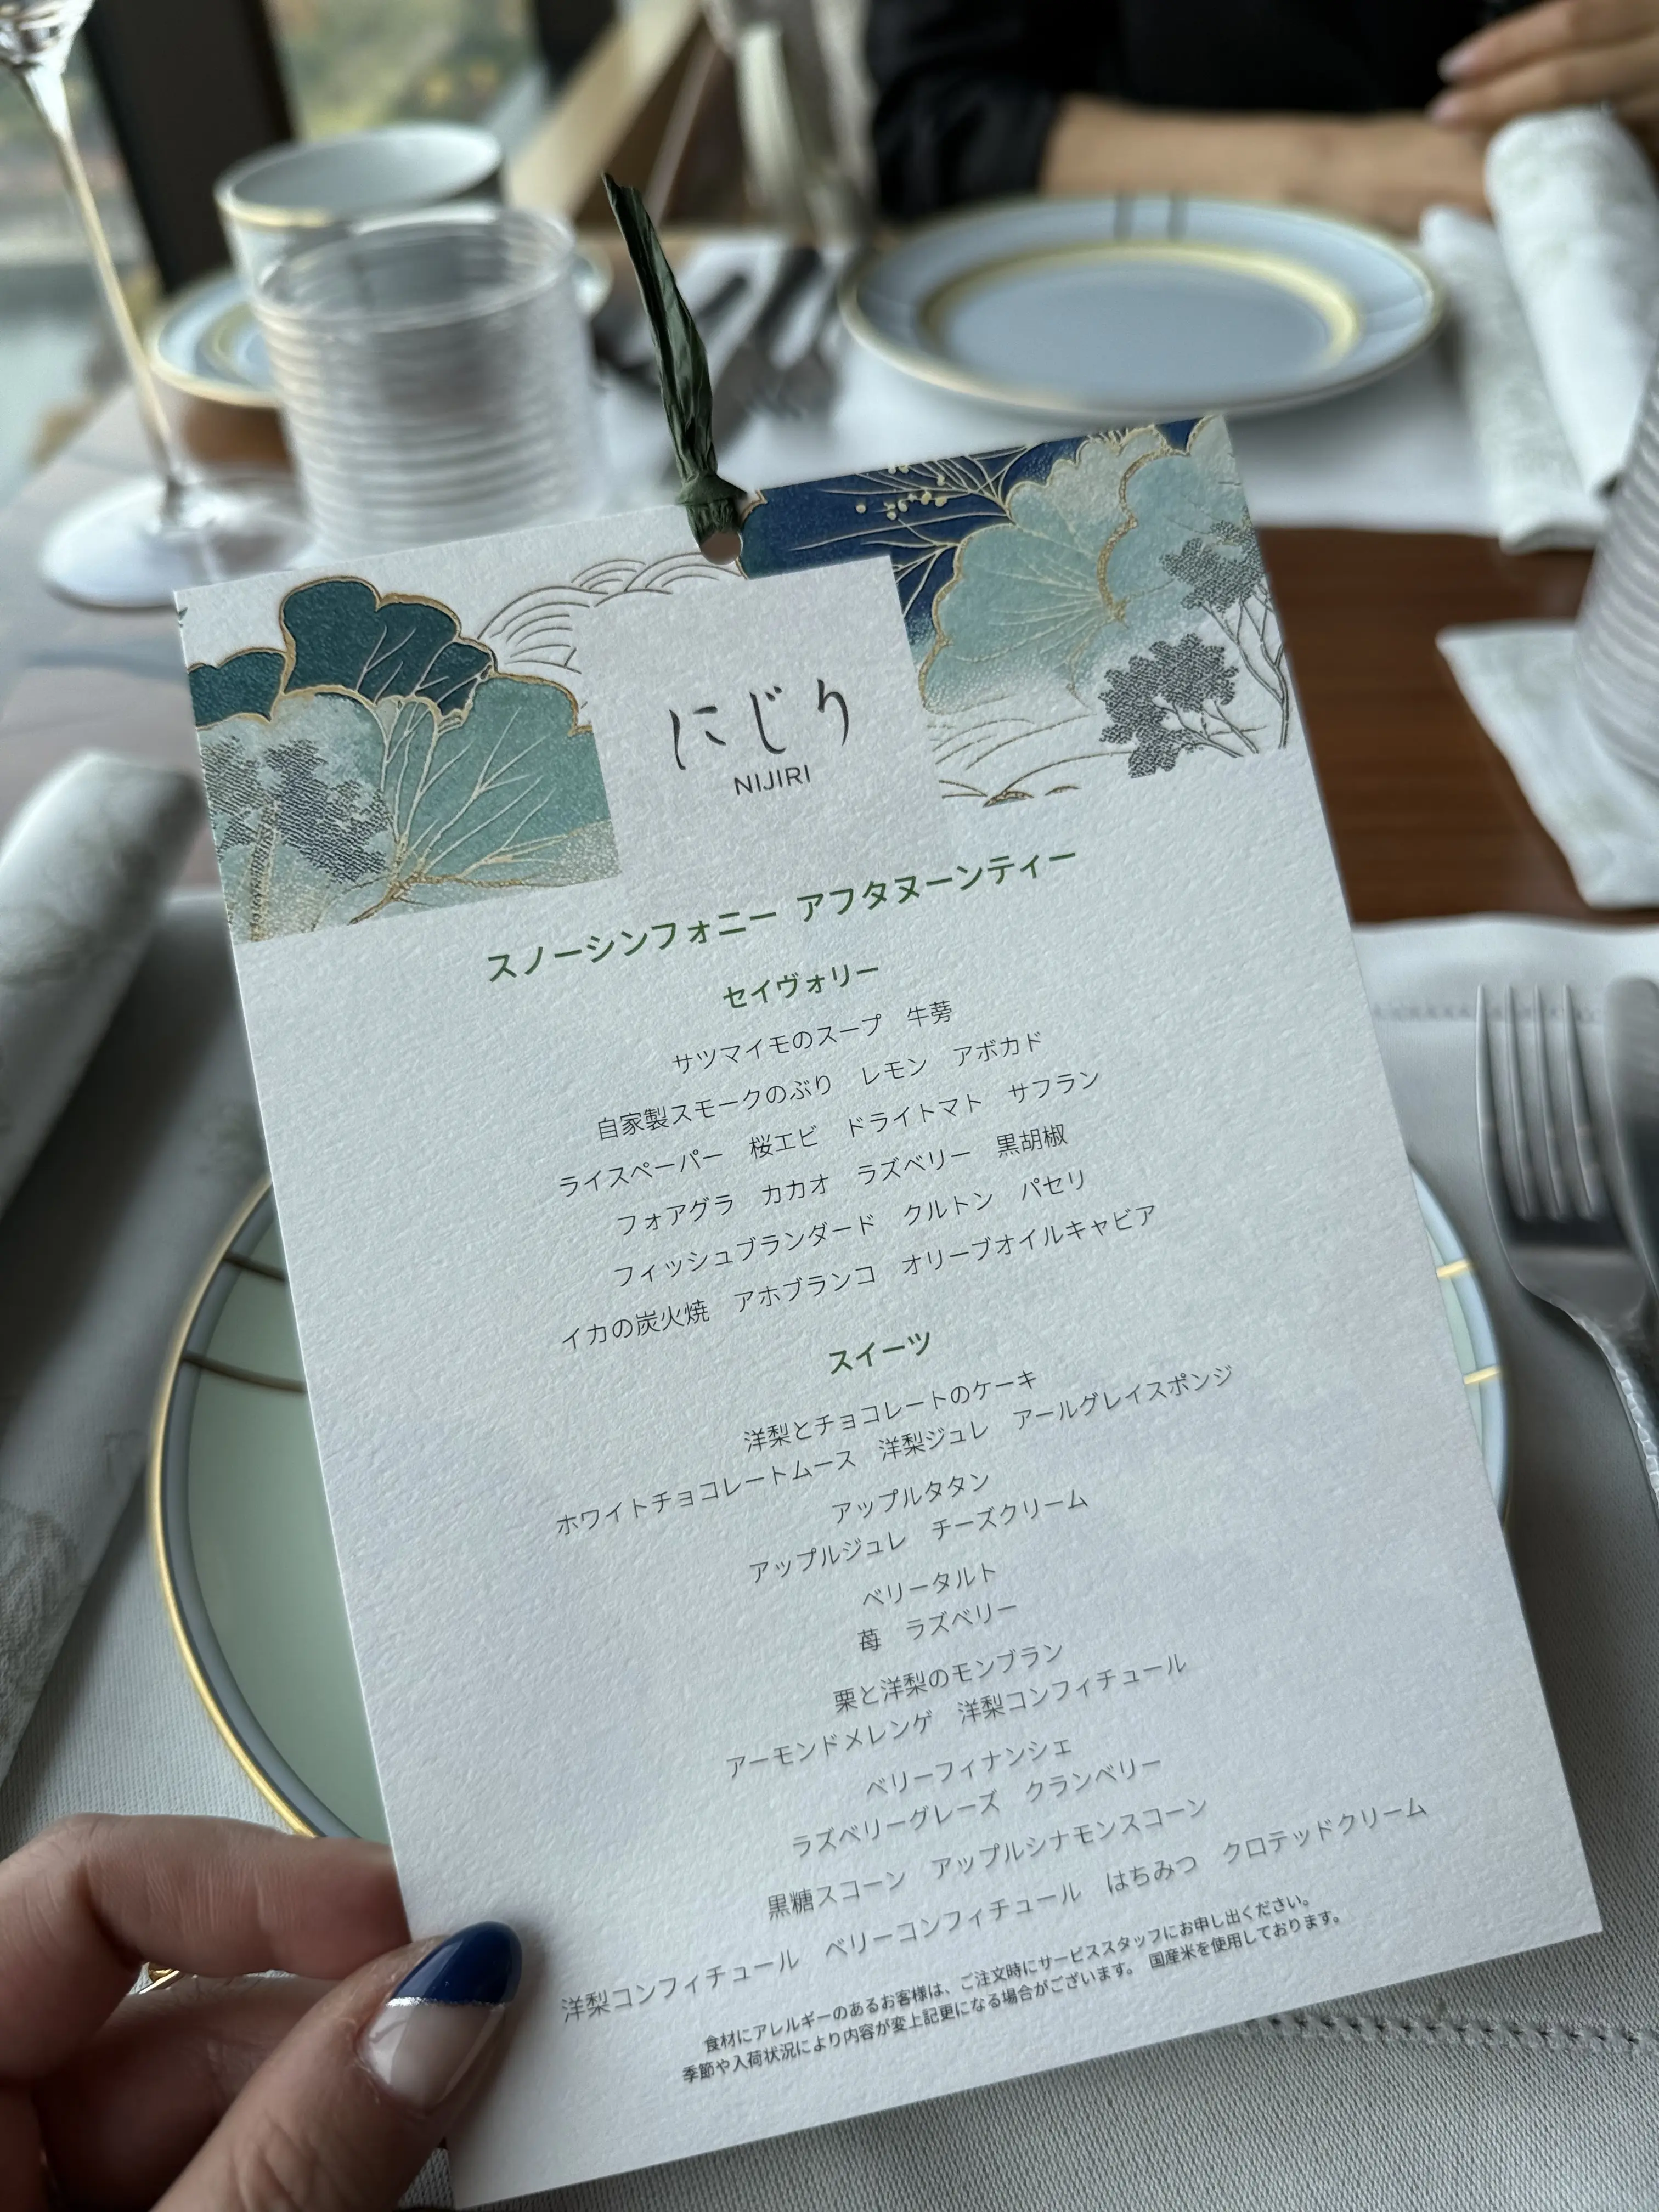 にじり
NIJIRI
スノーシンフォニー アフタヌーンティー
セイヴォリー
サツマイモのスープ　牛蒡
自家製スモークのぶり　レモン　アボカド
ライスペーパー　桜エビ　ドライトマト　サフラン
フォアグラ　カカオ　ラズベリー　黒胡椒
フィッシュブランダード　クルトン　パセリ
イカの炭火焼　アホブランコ　オリーブオイルキャビア
スイーツ
洋梨とチョコレートのケーキ
ホワイトチョコレートムース　洋梨ジュレ　アールグレイスポンジ
アップルタタン
アップルジュレ　チーズクリーム
ベリータルト
苺　ラズベリー
栗と洋梨のモンブラン
アーモンドメレンゲ　洋梨コンフィチュール
ベリーフィナンシェ
ラズベリーグレーズ　クランベリー
黒糖スコーン　アップルシナモンスコーン
洋梨コンフィチュール　ベリーコンフィチュール　はちみつ　クロテッドクリーム
食材にアレルギーのあるお客様は、ご注文時にサービススタッフにお申し出ください。
季節や入荷状況により内容が変上記更になる場合がございます。 国産米を使用しております。